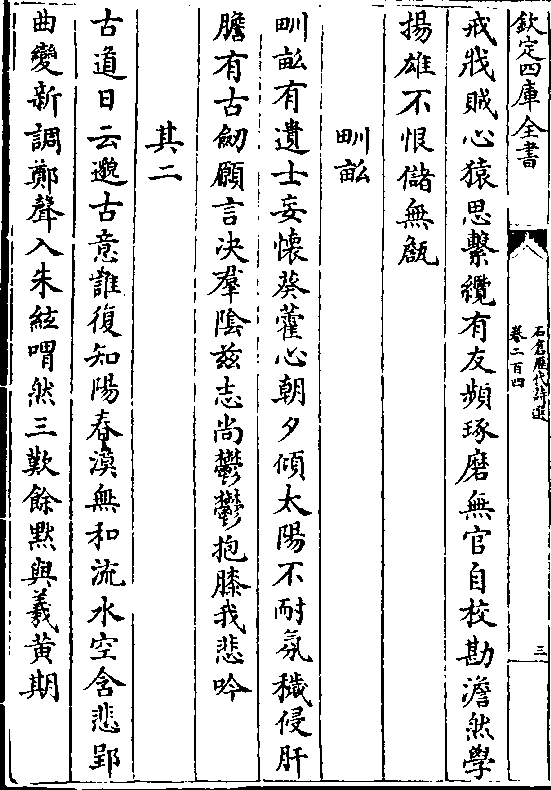 欽定四庫全書
石倉歷代詩選
卷二百四
三
戒戕賊心猿思繫纜有友頻琢磨無官自校勘澹然學
揚雄不恨儲無甔
甽畝
甽畝有遺士妄懐葵藿心朝夕傾太陽不耐氛穢侵肝
膽有古劒願言决羣陰兹志尚鬱鬱抱膝我悲吟
其二
古道日云邈古意誰復知陽春漠無和流水空含悲郢
曲變新調鄭聲入朱絃喟然三歎餘黙與羲黄期